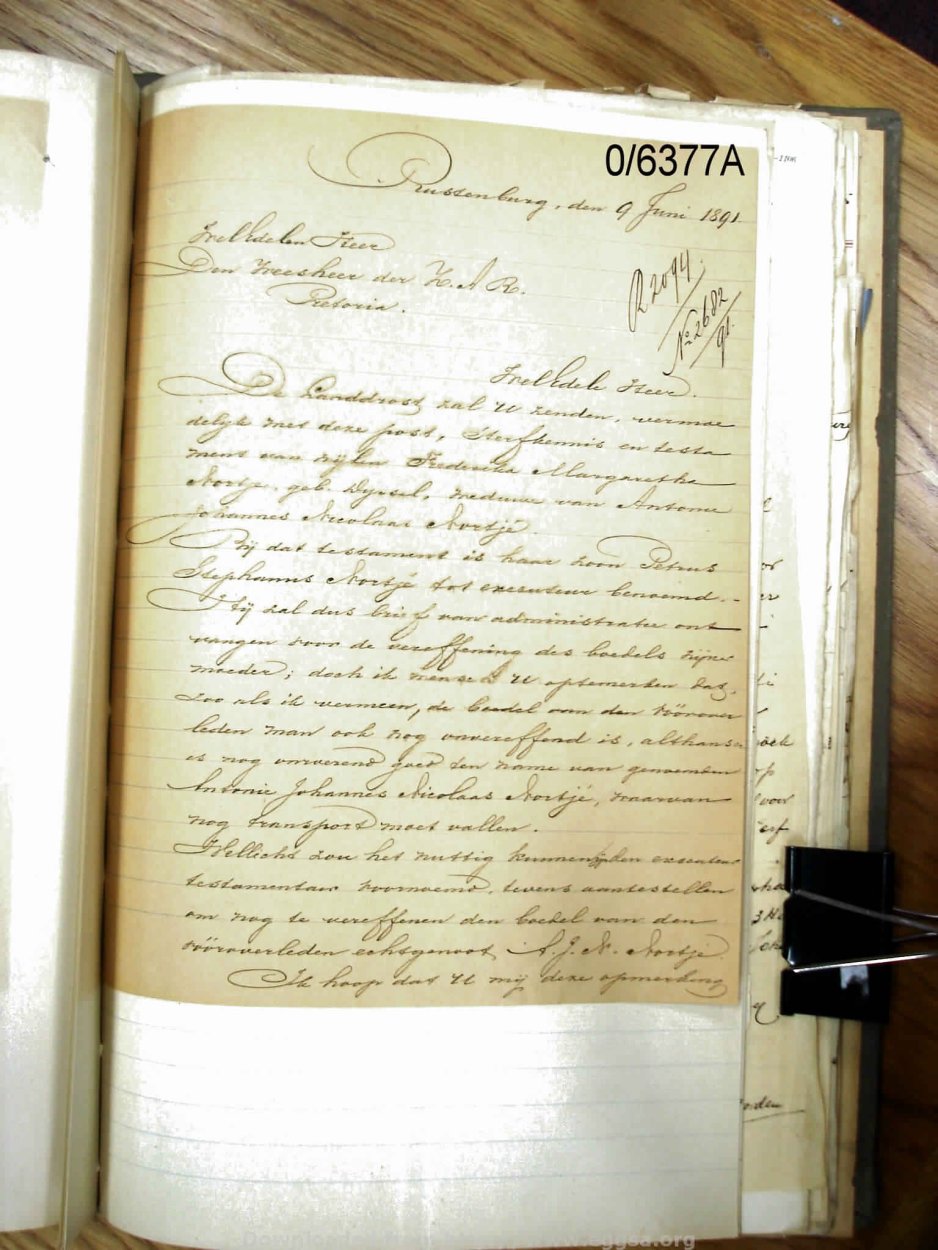 0/6377A
Rustenburg, den 9 Juni 1891
WelEdelen Heer
Den Weesheer der Z. A R.
Pretoria.
R 2094
No 2682
91.
WelEdele Heer.
De Landdrost zal U zenden, vermoe
delijk met deze post, Sterfkennis en testa
ment van wijlen Frederika Margaretha
Nortje, geb. Dyssel, weduwe van Antonie
Johannes Nicolaas Nortje
Bij dat testament is haar zoon Petrus
Stephanus Nortjé tot executeur benoemd. -
Hij zal dus brief van administratie ont
vangen voor de vereffening des boedels zijner
moeder; doch ik wensch U optemerken dat,
zoo als ik vermeen, de boedel van den vóórover
leden man ook nog onvereffend is, althans
is nog onroerend goed ten name van genoemden
Antonie Johannes Nicolaas Nortjé, waarvan
nog transport moet vallen.
Wellicht zou het nuttig kunnen zijn den executeur
testamentair voornoemd, tevens aantestellen
om nog te vereffenen den boedel van den
vóóroverleden echtgenoot, A. J. N. Nortje.
Ik hoop dat U mij deze opmerking